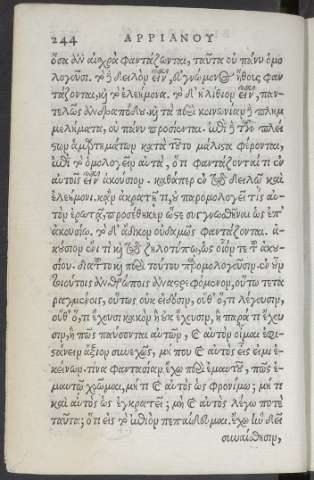 244 ΑΡΡΙΑΝΟΥ
ὅσα δ' ἂν αἰσχρὰ φαντάζωνται, ταῦτα οὐ πάνυ ὁμο
λογοῦσι. τὸ δειλὸν εἶναι, εὐγνώμονος ἤθους φαν
τάζονται, καὶ τὸ ἐλεήμονα. τὸ δ' ἠλίθιον εἶναι, παν-
τελῶς ἀνδραπόδου. καὶ τὰ περὶ κοινωνίαν πλημ
μελήματα, οὐ πάνυ προσίενται. ἐπὶ τῶν πλεί
στων ἁμαρτημάτων κατὰ τοῦτο μάλιστα φέρονται,
ἐπὶ τὸ ὁμολογεῖν αὐτὰ, ὅτι φαντάζονταί τι ἐν
αὐτοῖς εἶναι ἀκούσιον. καθάπερ ἐν τῷ δειλῷ καὶ
ἐλεήμονι. κἂν ἀκρατῆ τι, παρομολογεῖ τίς αὑ-
τὸν ἔρωτα, προσέθηκεν ὥστε συγνωσθῆναι ὡς ἐπ'
ἀκουσίῳ. τὸ δ' ἄδικον οὐδαμῶς φαντάζονται. ἀ-
κούσιον ἔνι τι καὶ τῷ ζηλοτύπῳ, ὡς οἴονται τοῦ ἀκου-
σίου. διὰ τοῦτο καὶ περὶ τούτου ὁμολογοῦσιν. ἐν οὖν
τοιούτοις ἀνθρώποις ἀναστρεφόμενον, οὕτω τετα
ραγμένοις, οὕτως οὐκ εἰδόσιν, οὐθ' ὅ, τι λέγουσιν,
οὐθ' ὅ, τι ἔχουσι κακὸν ἢ οὐκ ἔχουσιν, ἢ παρὰ τί ἔχου
σιν, ἢ πῶς παύσονται αὐτῶν, καὶ αὐτὸν οἶμαι ἐφι-
στάνειν ἄξιον συνεχῶς, μή που καὶ αὐτὸς εἷς εἰμι ἐ-
κείνων. τίνα φαντασίαν ἔχω περὶ ἐμαυτοῦ, πῶς ἐ-
μαυτῷ χρῶμαι, μή τι καὶ αὐτὸς ὡς φρονίμῳ; μή τι
καὶ αὐτὸς ὡς ἐγκρατεῖ; μὴ καὶ αὐτὸς λέγω ποτὲ
ταῦτα; ὅτι εἰς τὸ ἐπιὸν πεπαίδευμαι. ἔχω ἣν δεῖ
συναίσθησιν,